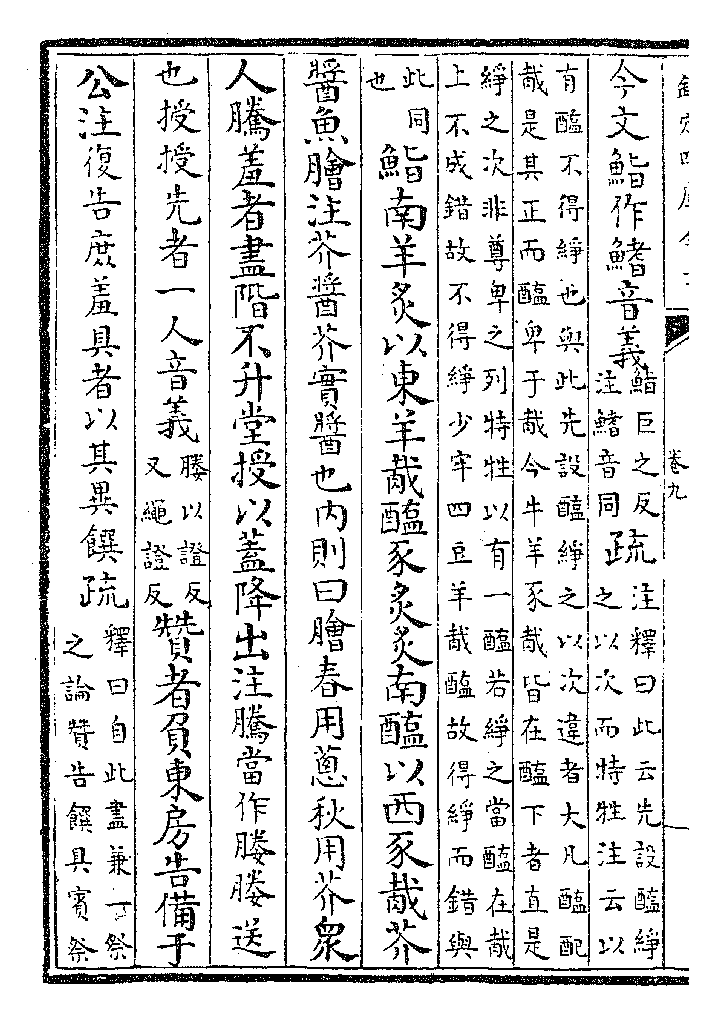 欽定四庫全書
卷九
今文鮨作鰭音義鮨巨之反
注鰭音同疏注釋曰此云先設醢䋫
之以次而特牲注云以
有醢不得䋫也與此先設醢䋫之以次違者大凡醢配
胾是其正而醢卑于胾今牛羊豕胾皆在醢下者直是
䋫之次非尊卑之列特牲以有一醢若䋫之當醢在胾
上不成錯故不得䋫少牢四豆羊胾醢故得䋫而錯與
此同
也 鮨南羊炙以東羊胾醢豕炙炙南醢以西豕胾芥
醬魚膾注芥醬芥實醬也内則曰膾春用蔥秋用芥眾
人騰羞者盡階不升堂授以蓋降出注騰當作媵媵送
也授授先者一人音義媵以證反
又繩證反贊者負東房告備于
公注復告庶羞具者以其異饌疏釋曰自此盡兼一祭
之論贊告饌具賓祭